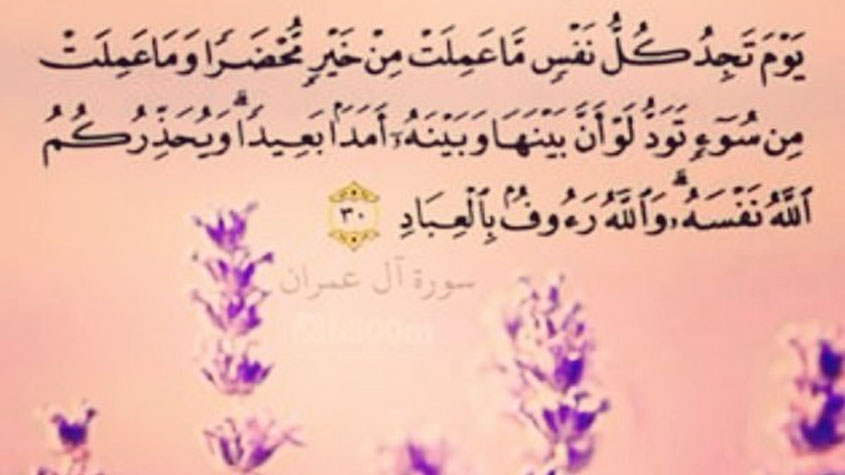 يَوْمَ تَجِدُ كُلُّ نَفْسٍ مَّا عَمِلَتْ مِنْ خَيْرٍ مُّحْضَرًا وَمَا عَمِلَتْ
مِن سُوٓءٍ تَوَدُّ لَوْ أَنَّ بَيْنَهَا وَبَيْنَهُۥٓ أَمَدًۢا بَعِيدًا ۗ وَيُحَذِّرُكُمُ
ٱللَّهُ نَفْسَهُۥ ۗ وَٱللَّهُ رَءُوفٌۢ بِٱلْعِبَادِ ٣٠
سورة آل عمران